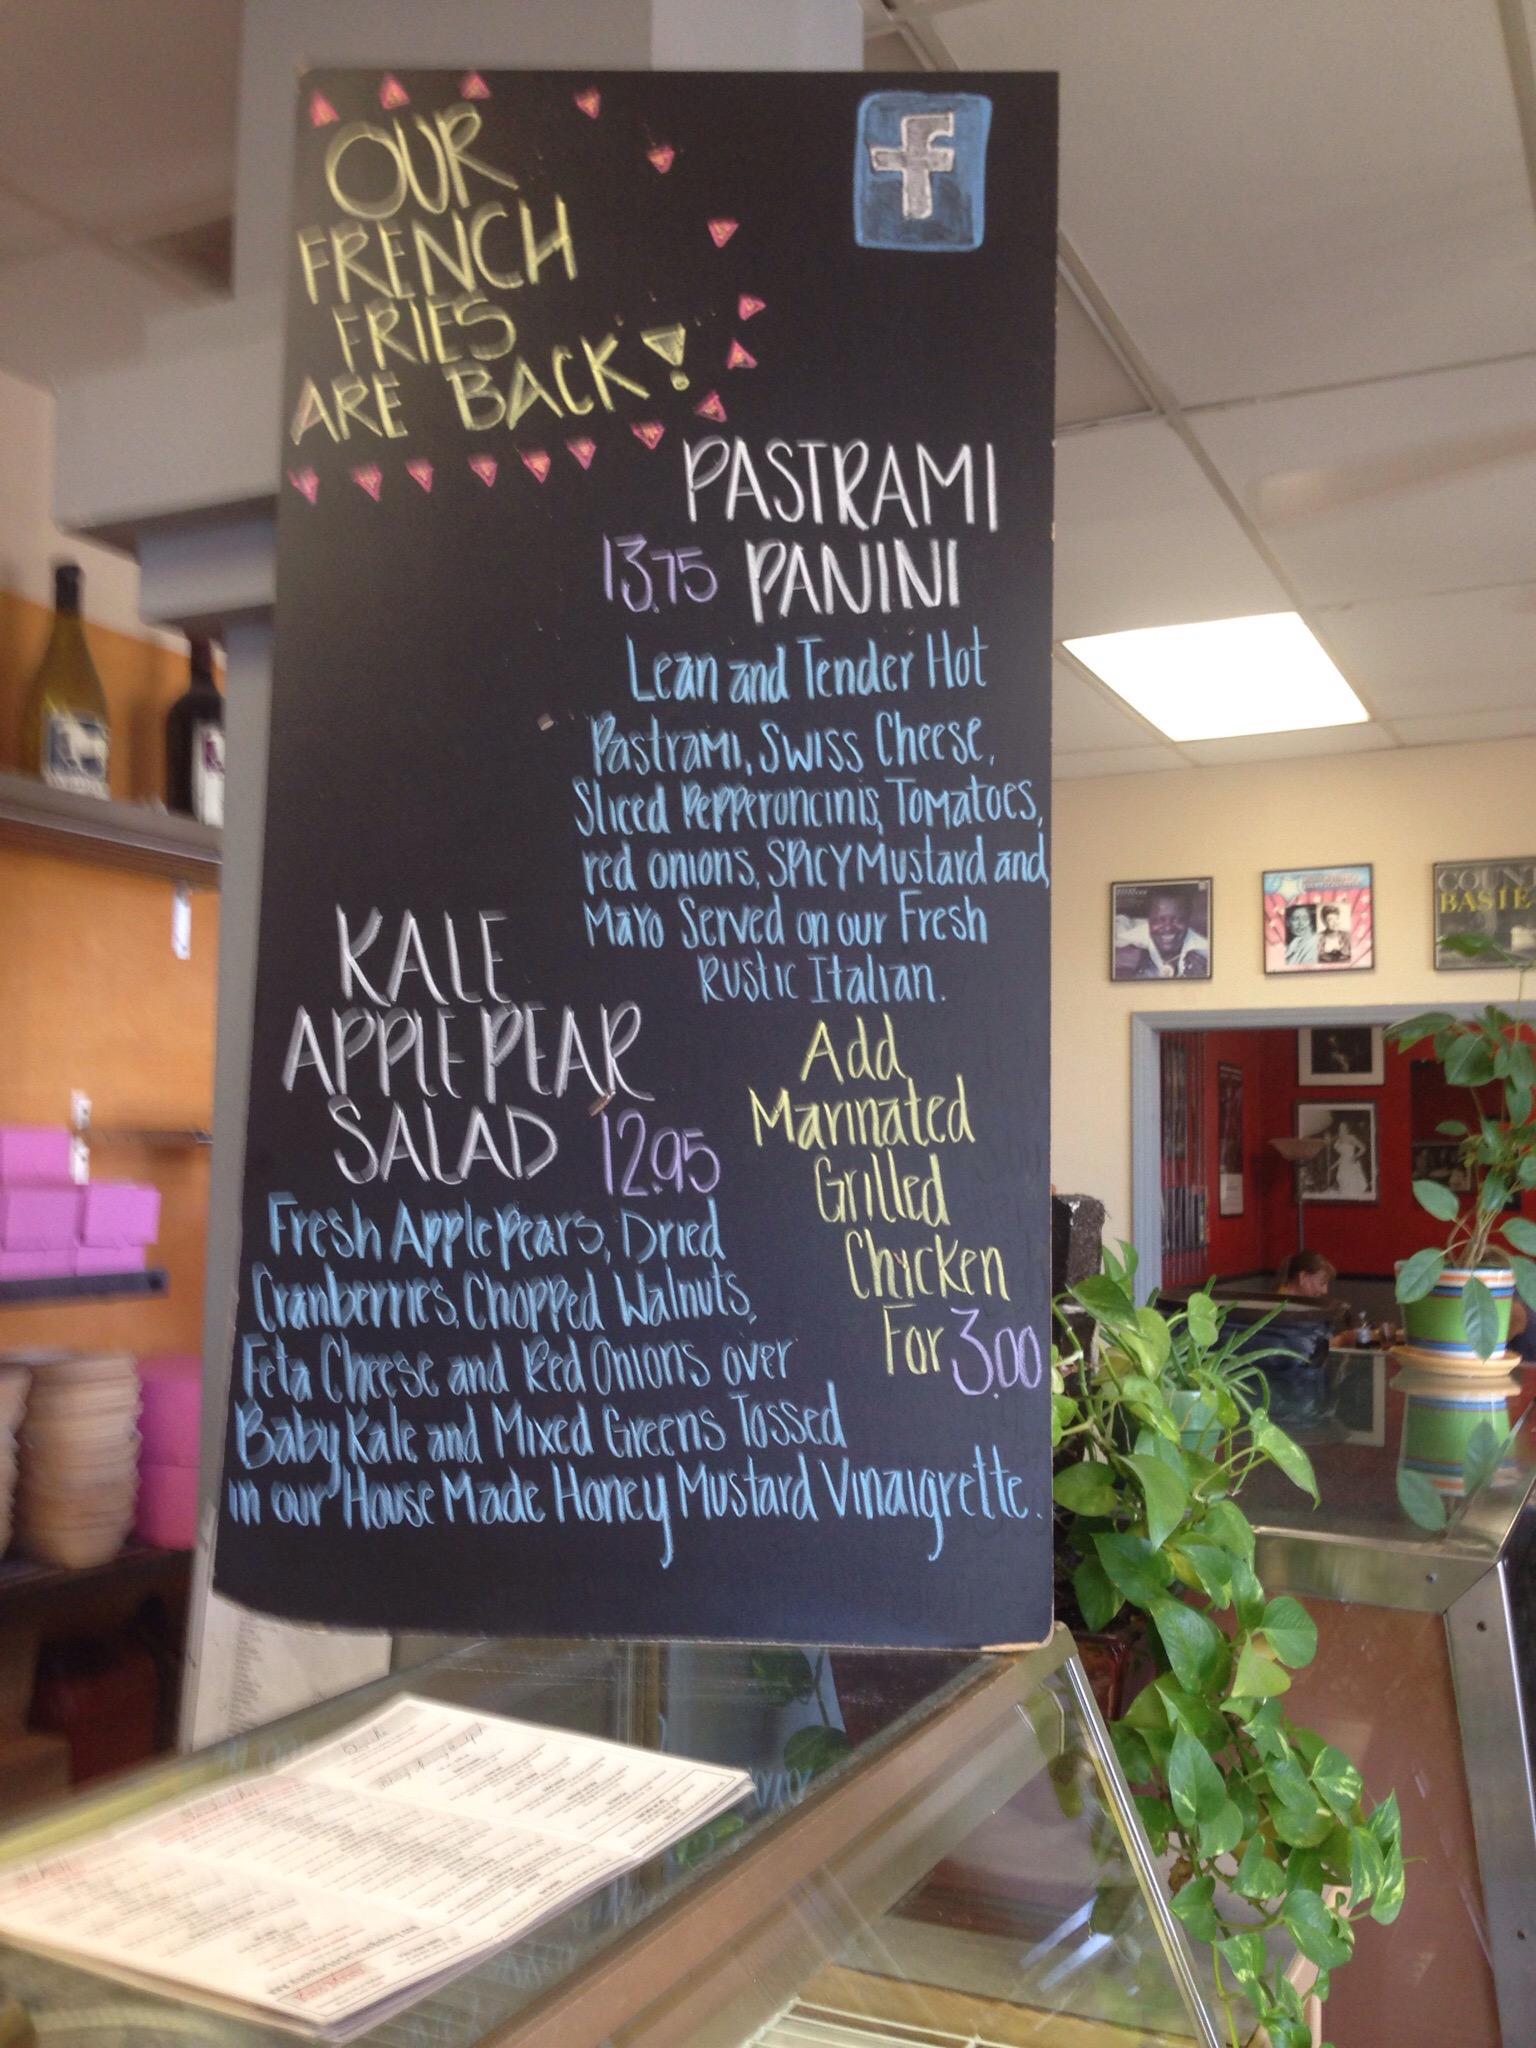 OUR
FRENCH
FRIES
ARE BACK!
f
PASTRAMI
13.75 PANINI
Lean and Tender Hot
Pastrami, Swiss Cheese,
Sliced Pepperoncinis, Tomatoes,
red onions, Spicy Mustard and
Mayo Served on our Fresh
Rustic Italian.
KALE
APPLE PEAR
SALAD 12.95
Fresh Apple Pears, Dried
Cranberries, Chopped Walnuts,
Feta Cheese and Red Onions over
Baby Kale and Mixed Greens Tossed
in our House Made Honey Mustard Vinaigrette.
Add
Marinated
Grilled
Chicken
For 3.00
COUNT
BASIE